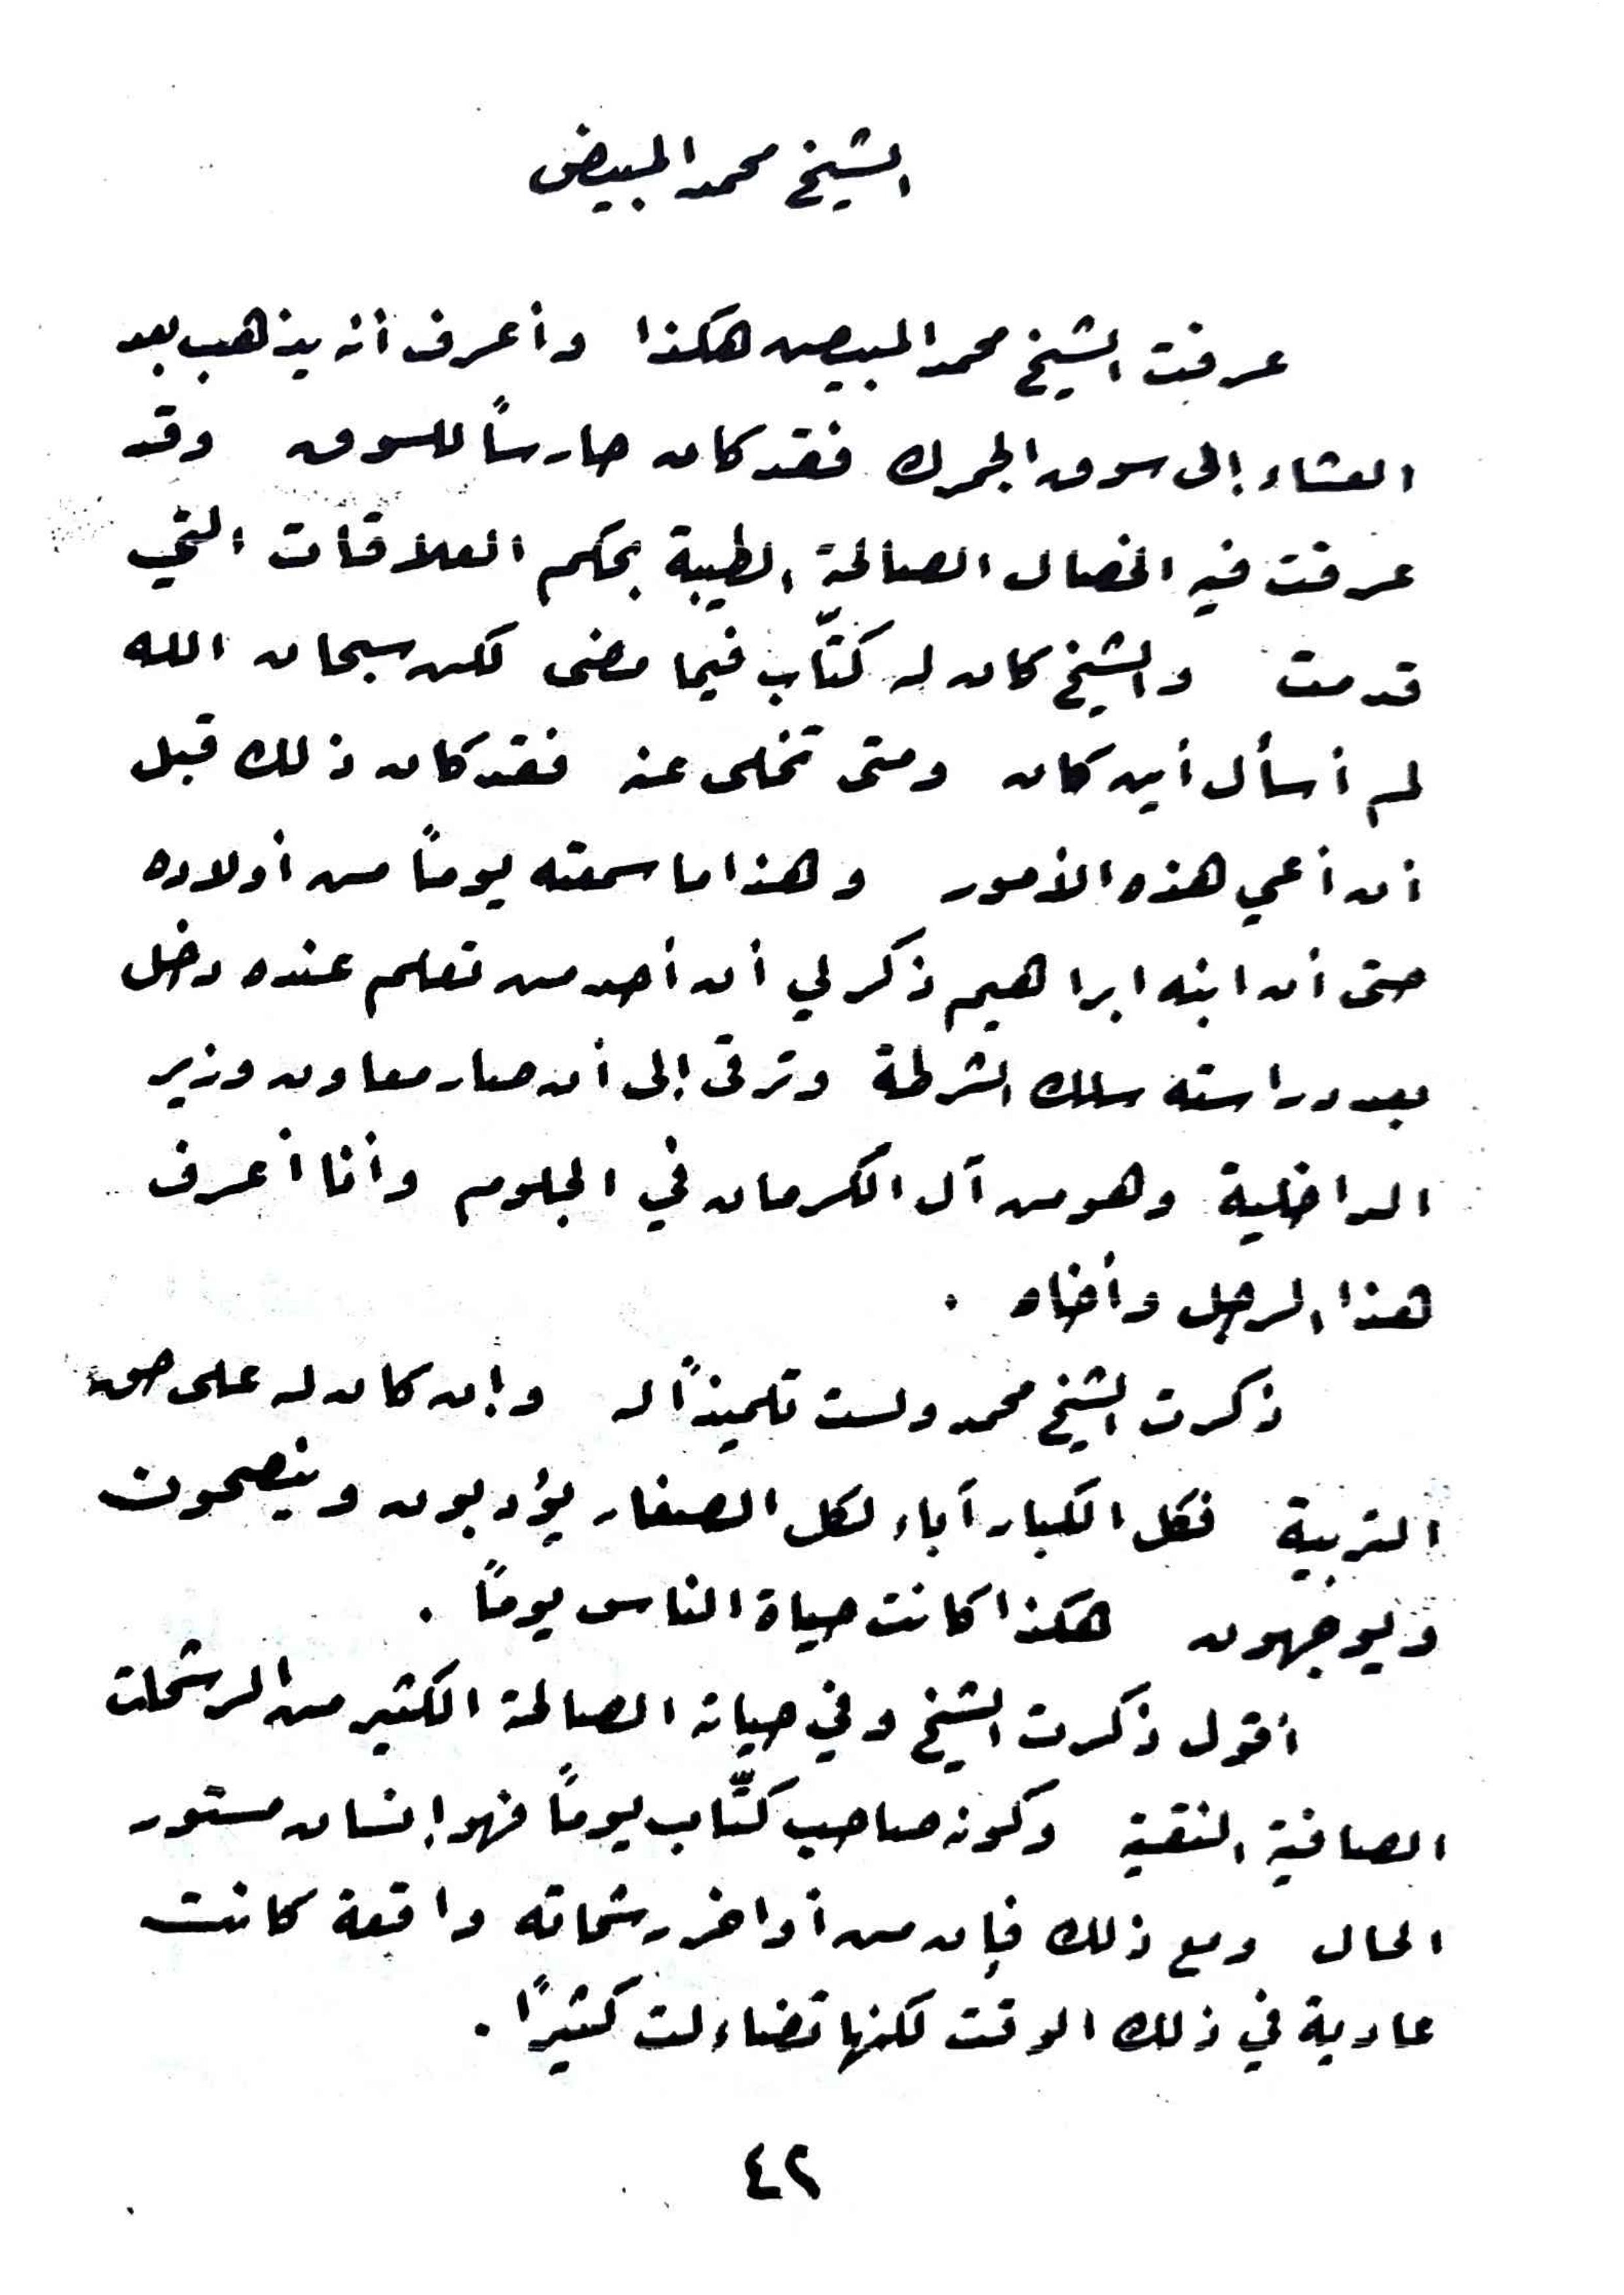 الشيخ محمد المبيض
عرفت الشيخ محمد المبيض هكذا وأعرف أنه يذهب بعد
العشاء إلى سوق الجمرك فقد كان حارساً للسوق وقد
عرفت فيه الخصال الصالحة الطيبة بحكم العلاقات التي
قدمت والشيخ كان له كتّاب فيما مضى لكن سبحان الله
لم أسأل أين كان ومتى تخلى عنه فقد كان ذلك قبل
أن أعي هذه الأمور وهذا ما سمعته يوماً من أولاده
حتى أن ابنه ابراهيم ذكر لي أن أحد من تعلم عنده دخل
بعد دراسته سلك الشرطة وترقى إلى أن صار معاون وزير
الداخلية وهو من آل الكرمان في الجلوم وأنا أعرف
هذا الرجل وأخاه .
ذكرت الشيخ محمد ولست تلميذاً له وإن كان له علي حق
التربية فكل الكبار آباء لكل الصغار يؤدبون وينصحون
ويوجهون هكذا كانت حياة الناس يوماً .
أقول ذكرت الشيخ وفي حياته الصالحة الكثير من الرشحات
الصافية النقية وكونه صاحب كتّاب يوماً فهو إنسان مستور
الحال ومع ذلك فإن من أواخر رشحاته واقعة كانت
عادية في ذلك الوقت لكنها تضاءلت كثيراً .
٤٢